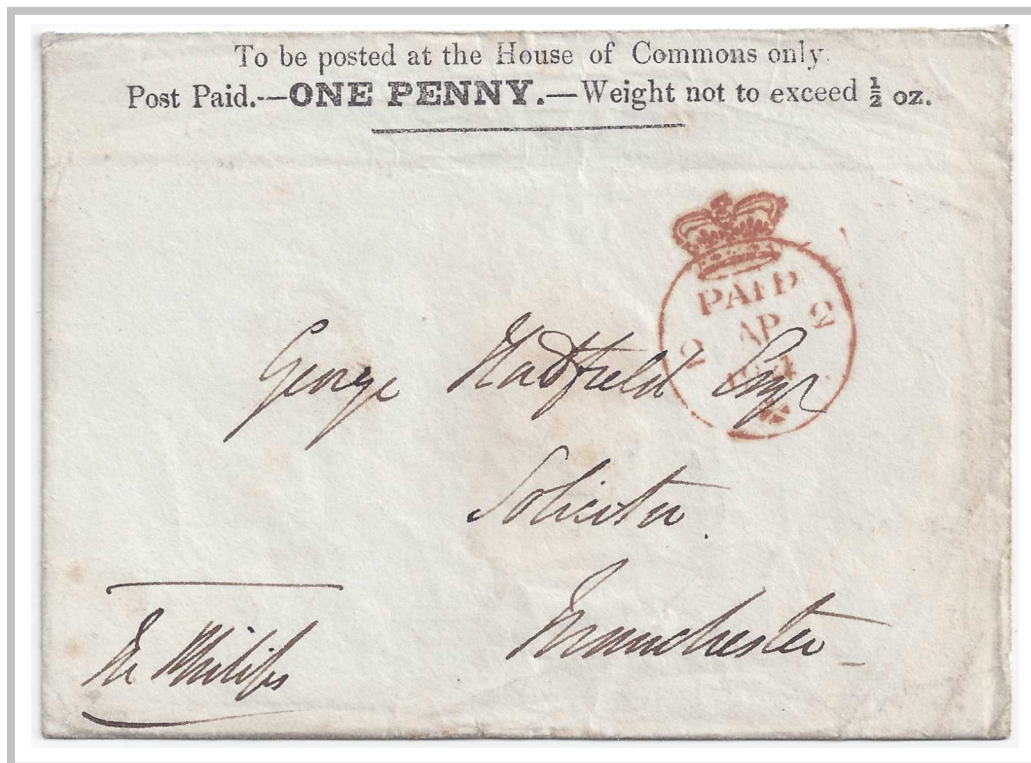 To be posted at the House of Commons only.
Post Paid.--ONE PENNY.—Weight not to exceed ½ oz.
PAID
2 AP 2
George Hadfield Esqr
Solicitor.
Manchester
M Philips